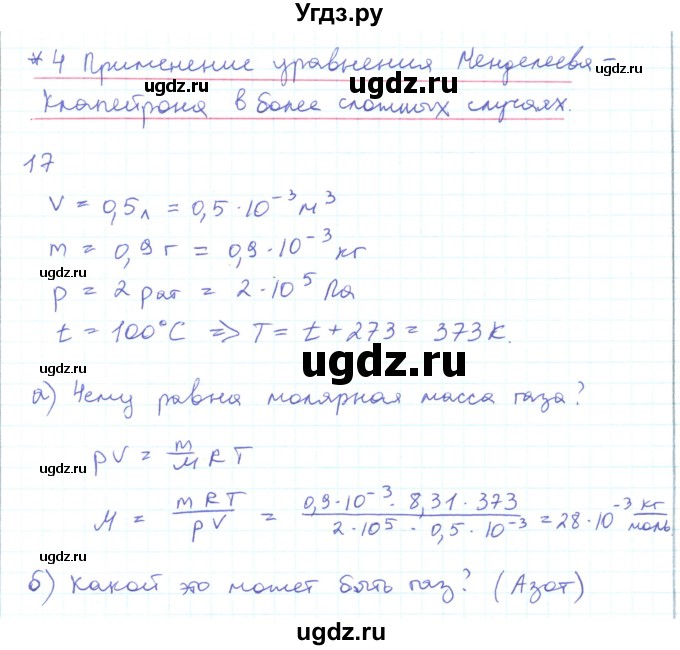 Угдз.ру
* 4 Применение уравнения Менделеева –
ugdz.ru
ugdz.ru
Клапейрона в более сложных случаях.
ugdz.ru
17
V = 0,5 л = 0,5 · 10⁻³ м³
m = 0,9 г = 0,9 · 10⁻³ кг
ugdz.ru
p = 2 pат = 2 · 10⁵ Па
t = 100°C => T = t + 273 = 373 K.
ugdz.ru
ugdz.ru
а) Чему равна молярная масса газа?
pV = m/M RT
ugdz.ru
M = mRT/pV = 0,9 · 10⁻³ · 8,31 · 373/2 · 10⁵ · 0,5 · 10⁻³ = 28 · 10⁻³ кг/моль
ugdz.ru
ugdz.ru
б) Какой это может быть газ? (Азот)
ugdz.ru